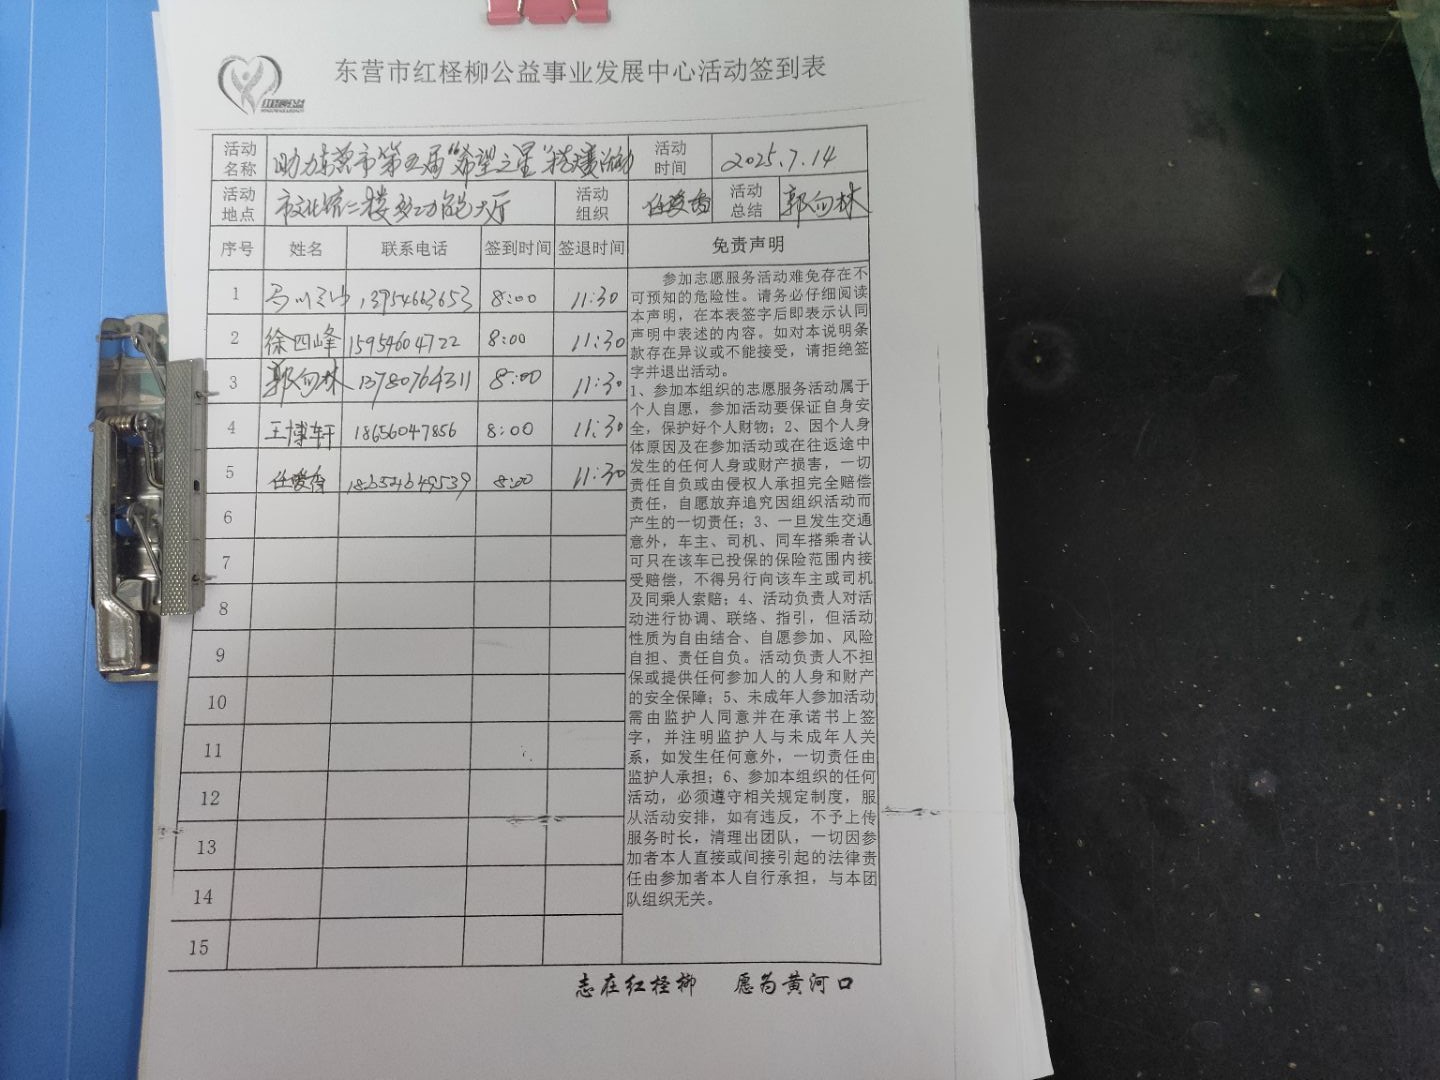 东营市红柽柳公益事业发展中心活动签到表
活动名称 助力东营市第五届“希望之星”竞赛活动 活动时间 2025.7.14
活动地点 市文化馆二楼多功能大厅 活动组织 任爱香 活动总结 郭向林
序号 姓名 联系电话 签到时间 签退时间 免责声明
1 13954663653 8:00 11:30
2 徐四峰 15954604722 8:00 11:30
3 郭向林 13780764311 8:00 11:30
4 王博轩 18656047856 8:00 11:30
5 任爱香 8:00 11:30
6
7
8
9
10
11
12
13
14
15
参加志愿服务活动难免存在不
可预知的危险性。请务必仔细阅读
本声明，在本表签字后即表示认同
声明中表述的内容。如对本说明条
款存在异议或不能接受，请拒绝签
字并退出活动。
1、参加本组织的志愿服务活动属于
个人自愿，参加活动要保证自身安
全，保护好个人财物；2、因个人身
体原因及在参加活动或在往返途中
发生的任何人身或财产损害，一切
责任自负或由侵权人承担完全赔偿
责任，自愿放弃追究因组织活动而
产生的一切责任；3、一旦发生交通
意外，车主、司机、同车搭乘者认
可只在该车已投保的保险范围内接
受赔偿，不得另行向该车主或司机
及同乘人索赔；4、活动负责人对活
动进行协调、联络、指引，但活动
性质为自由结合、自愿参加、风险
自担、责任自负。活动负责人不担
保或提供任何参加人的人身和财产
的安全保障；5、未成年人参加活动
需由监护人同意并在承诺书上签
字，并注明监护人与未成年人关
系，如发生任何意外，一切责任由
监护人承担；6、参加本组织的任何
活动，必须遵守相关规定制度，服
从活动安排，如有违反，不予上传
服务时长，清理出团队，一切因参
加者本人直接或间接引起的法律责
任由参加者本人自行承担，与本团
队组织无关。
志在红柽柳 愿为黄河口